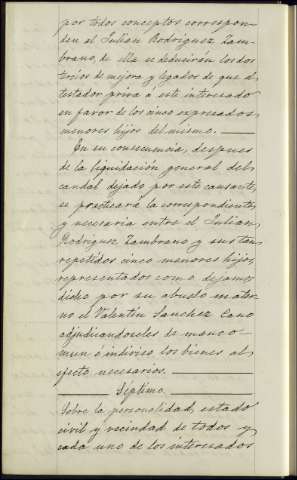 por todos conceptos correspon-
den al Julian Rodriguez Zam-
brano, de ella se deducirán los dos
tercios de mejora y legados de que el
testador priva a este interesado
en favor de los cinco expresados,
menores hijos del mismo.
En su consecuencia, despues
de la liquidación general del
caudal dejado por este causante,
se practicará la correspondiente,
y necesaria entre el Julian
Rodriguez Zambrano y sus tan
repetidos cinco menores hijos,
representados como dejamos
dicho por su abuelo mater-
no el Valentin Sanchez Cano
adjudicandoseles de manco-
mun é indiviso los bienes al
efecto necesarios.
Séptimo.
Sobre la personalidad, estado
civil y vecindad de todos y
cada uno de los interesados